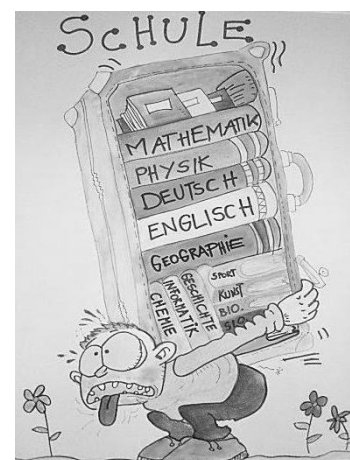 SCHULE
MATHEMATIK
PHYSIK
DEUTSCH
ENGLISCH
GEOGRAPHIE
GESCHICHTE
INFORMATIK
CHEMIE
SPORT
KUNST
BIO.